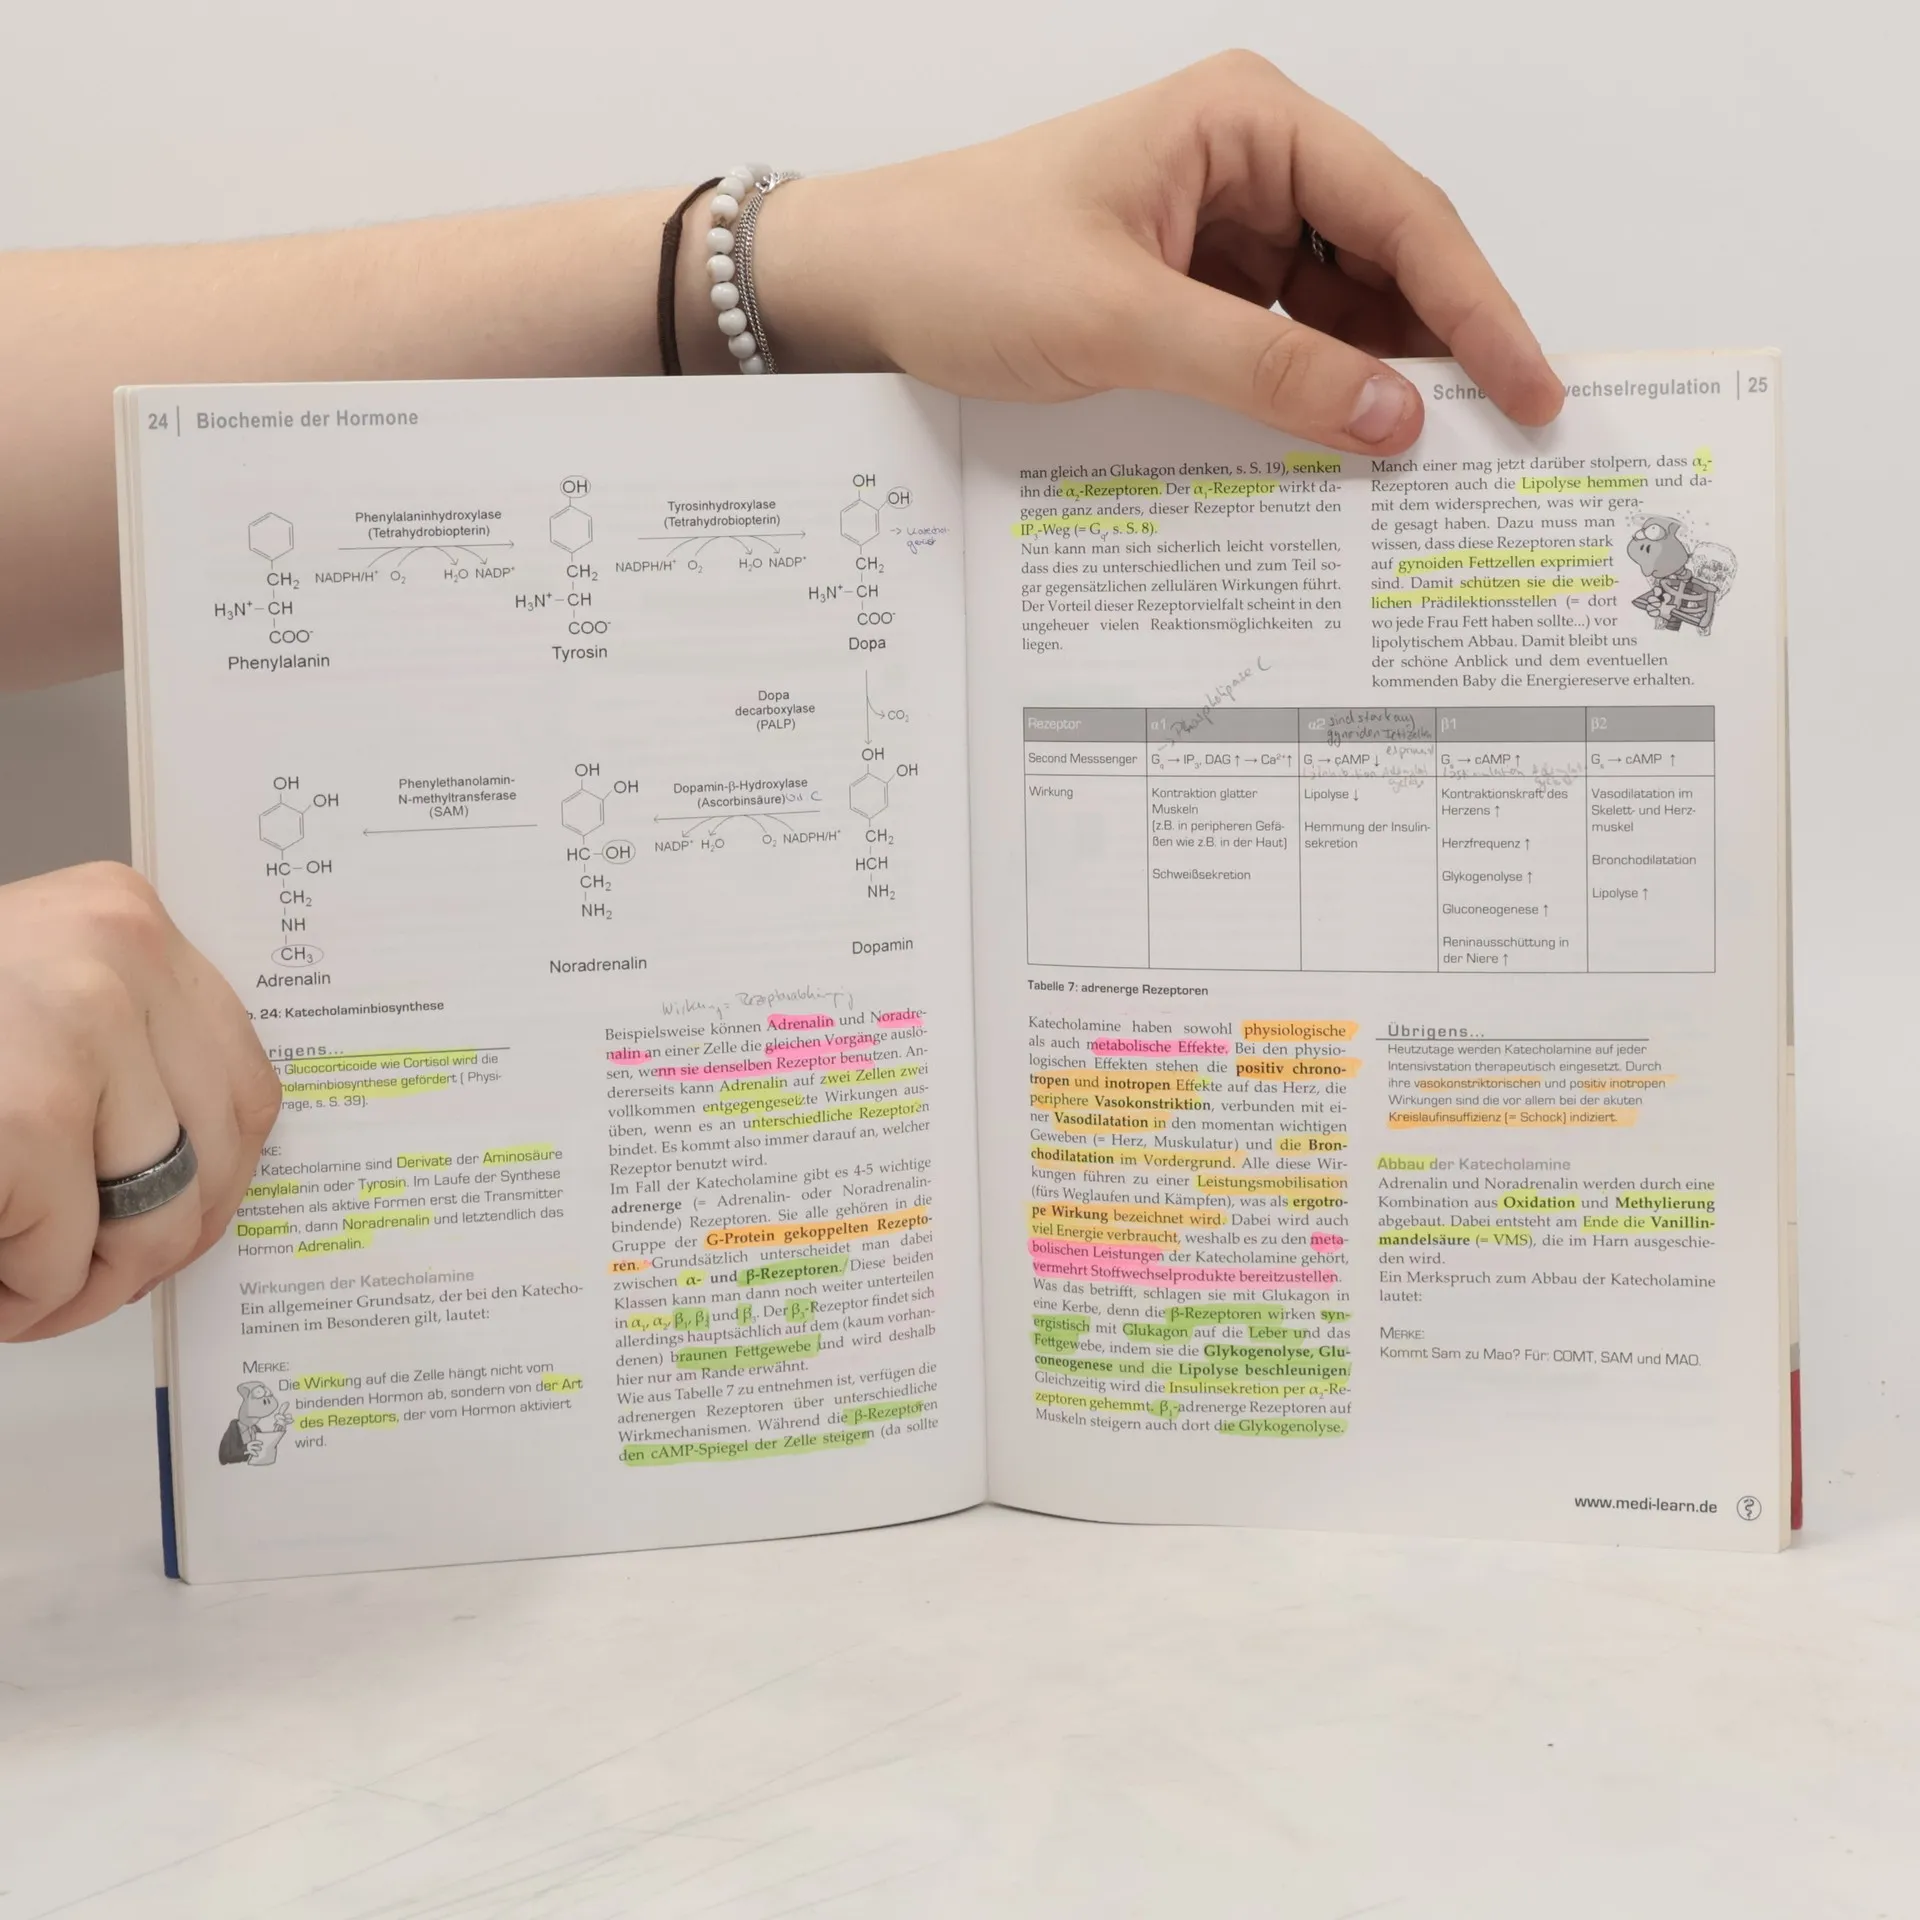 24 | Biochemie der Hormone
OH
OH
OH
OH
Phenylalaninhydroxylase
(Tetrahydrobiopterin)
Tyrosinhydroxylase
(Tetrahydrobiopterin)
NADPH/H⁺ O₂ H₂O NADP⁺
NADPH/H⁺ O₂ H₂O NADP⁺
CH₂
H₃N⁺–CH
COO⁻
Phenylalanin
CH₂
H₃N⁺–CH
COO⁻
Tyrosin
CH₂
H₃N⁺–CH
COO⁻
Dopa
Dopa
decarboxylase
(PALP)
CO₂
OH
OH
Dopamin-β-Hydroxylase
(Ascorbinsäure)
NADP⁺ H₂O O₂ NADPH/H⁺
CH₂
HCH
NH₂
Dopamin
OH
OH
HC–OH
CH₂
NH₂
Noradrenalin
Phenylethanolamin-
N-methyltransferase
(SAM)
OH
OH
HC–OH
CH₂
NH
CH₃
Adrenalin
24: Katecholaminbiosynthese
Glucocorticoide wie Cortisol wird die
gefördert ( Physi-
s. S. 39).
Katecholamine sind Derivate der Aminosäure
oder Tyrosin. Im Laufe der Synthese
entstehen als aktive Formen erst die Transmitter
Dopamin, dann Noradrenalin und letztendlich das
Hormon Adrenalin.
Wirkungen der Katecholamine
Ein allgemeiner Grundsatz, der bei den Katecho-
laminen im Besonderen gilt, lautet:
MERKE:
Die Wirkung auf die Zelle hängt nicht vom
bindenden Hormon ab, sondern von der Art
des Rezeptors, der vom Hormon aktiviert
wird.
Wirkung = Rezeptorabhängig
Beispielsweise können Adrenalin und Noradre-
nalin an einer Zelle die gleichen Vorgänge auslö-
sen, wenn sie denselben Rezeptor benutzen. An-
dererseits kann Adrenalin auf zwei Zellen zwei
vollkommen entgegengesetzte Wirkungen aus-
üben, wenn es an unterschiedliche Rezeptoren
bindet. Es kommt also immer darauf an, welcher
Rezeptor benutzt wird.
Im Fall der Katecholamine gibt es 4-5 wichtige
adrenerge (= Adrenalin- oder Noradrenalin-
bindende) Rezeptoren. Sie alle gehören in die
Gruppe der G-Protein gekoppelten Rezepto-
ren. Grundsätzlich unterscheidet man dabei
zwischen α- und β-Rezeptoren. Diese beiden
Klassen kann man dann noch weiter unterteilen
in α₁, α₂, β₁, β₂ und β₃. Der β₃-Rezeptor findet sich
allerdings hauptsächlich auf dem (kaum vorhan-
denen) braunen Fettgewebe und wird deshalb
hier nur am Rande erwähnt.
Wie aus Tabelle 7 zu entnehmen ist, verfügen die
adrenergen Rezeptoren über unterschiedliche
Wirkmechanismen. Während die β-Rezeptoren
den cAMP-Spiegel der Zelle steigern (da sollte
| 25
man gleich an Glukagon denken, s. S. 19), senken
ihn die α₂-Rezeptoren. Der α₁-Rezeptor wirkt da-
gegen ganz anders, dieser Rezeptor benutzt den
IP₃-Weg (= Gq, s. S. 8).
Nun kann man sich sicherlich leicht vorstellen,
dass dies zu unterschiedlichen und zum Teil so-
gar gegensätzlichen zellulären Wirkungen führt.
Der Vorteil dieser Rezeptorvielfalt scheint in den
ungeheuer vielen Reaktionsmöglichkeiten zu
liegen.
Manch einer mag jetzt darüber stolpern, dass α₂-
Rezeptoren auch die Lipolyse hemmen und da-
mit dem widersprechen, was wir gera-
de gesagt haben. Dazu muss man
wissen, dass diese Rezeptoren stark
auf gynoiden Fettzellen exprimiert
sind. Damit schützen sie die weib-
lichen Prädilektionsstellen (= dort
wo jede Frau Fett haben sollte...) vor
lipolytischem Abbau. Damit bleibt uns
der schöne Anblick und dem eventuellen
kommenden Baby die Energiereserve erhalten.
→ Phospholipase C
Rezeptor α1 α2 sind stark auf β1 β2
gynoiden Fettzellen
Second Messsenger Gq → IP₃, DAG ↑ → Ca²⁺↑ Gi → cAMP ↓ Gs → cAMP ↑ Gs → cAMP ↑
Wirkung
Kontraktion glatter
Muskeln
(z.B. in peripheren Gefä-
ßen wie z.B. in der Haut)
Schweißsekretion
Lipolyse ↓
Hemmung der Insulin-
sekretion
Kontraktionskraft des
Herzens ↑
Herzfrequenz ↑
Glykogenolyse ↑
Gluconeogenese ↑
Reninausschüttung in
der Niere ↑
Vasodilatation im
Skelett- und Herz-
muskel
Bronchodilatation
Lipolyse ↑
Tabelle 7: adrenerge Rezeptoren
Katecholamine haben sowohl physiologische
als auch metabolische Effekte. Bei den physio-
logischen Effekten stehen die positiv chrono-
tropen und inotropen Effekte auf das Herz, die
periphere Vasokonstriktion, verbunden mit ei-
ner Vasodilatation in den momentan wichtigen
Geweben (= Herz, Muskulatur) und die Bron-
chodilatation im Vordergrund. Alle diese Wir-
kungen führen zu einer Leistungsmobilisation
(fürs Weglaufen und Kämpfen), was als ergotro-
pe Wirkung bezeichnet wird. Dabei wird auch
viel Energie verbraucht, weshalb es zu den meta-
bolischen Leistungen der Katecholamine gehört,
vermehrt Stoffwechselprodukte bereitzustellen.
Was das betrifft, schlagen sie mit Glukagon in
eine Kerbe, denn die β-Rezeptoren wirken syn-
ergistisch mit Glukagon auf die Leber und das
Fettgewebe, indem sie die Glykogenolyse, Glu-
coneogenese und die Lipolyse beschleunigen.
Gleichzeitig wird die Insulinsekretion per α₂-Re-
zeptoren gehemmt. β₁-adrenerge Rezeptoren auf
Muskeln steigern auch dort die Glykogenolyse.
Übrigens...
Heutzutage werden Katecholamine auf jeder
Intensivstation therapeutisch eingesetzt. Durch
ihre vasokonstriktorischen und positiv inotropen
Wirkungen sind die vor allem bei der akuten
Kreislaufinsuffizienz (= Schock) indiziert.
Abbau der Katecholamine
Adrenalin und Noradrenalin werden durch eine
Kombination aus Oxidation und Methylierung
abgebaut. Dabei entsteht am Ende die Vanillin-
mandelsäure (= VMS), die im Harn ausgeschie-
den wird.
Ein Merkspruch zum Abbau der Katecholamine
lautet:
MERKE:
Kommt Sam zu Mao? Für: COMT, SAM und MAO.
www.medi-learn.de